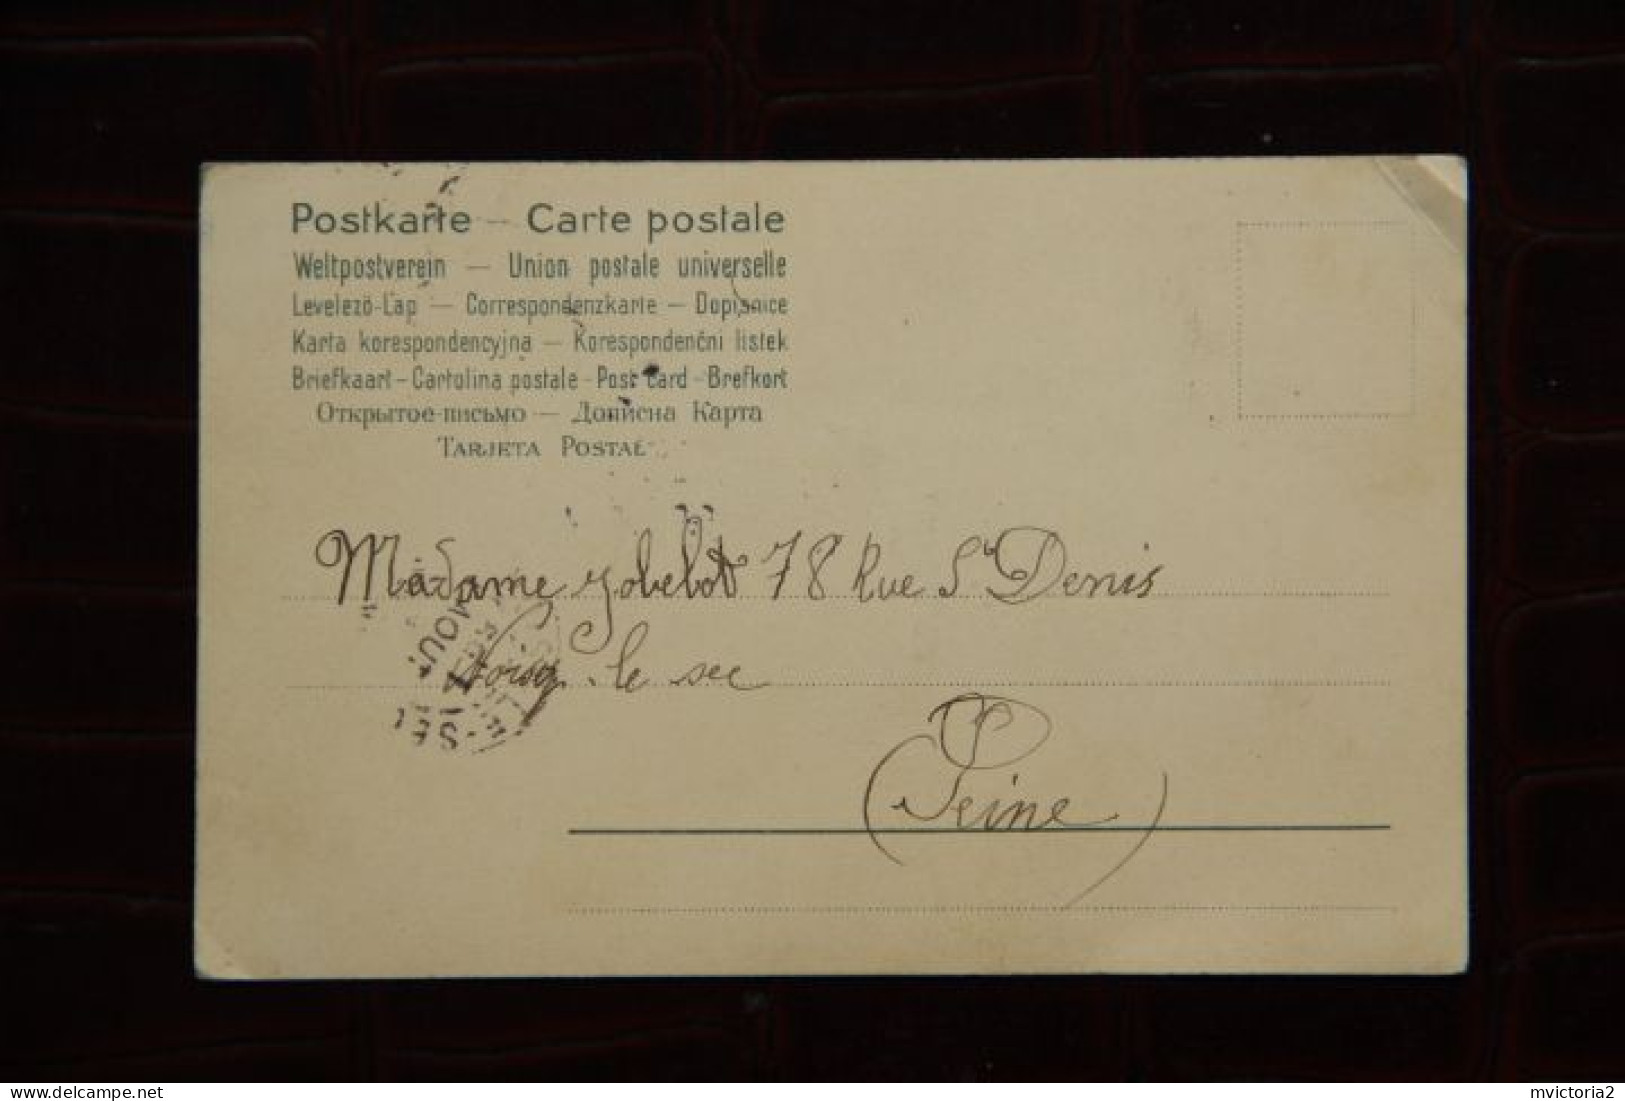 Postkarte – Carte postale
Weltpostverein — Union postale universelle
Levelező-Lap — Correspondenzkarte — Dopisnice
Karta korespondencyjna — Korespondenčni listek
Briefkaart – Cartolina postale - Post card - Brefkort
Открытое письмо — Дописна Карта
TARJETA POSTAL
Madame Jobelot 78 Rue St Denis
Noisy. le sec
(Seine)
MOUT
LE-SEC
mvictoria2